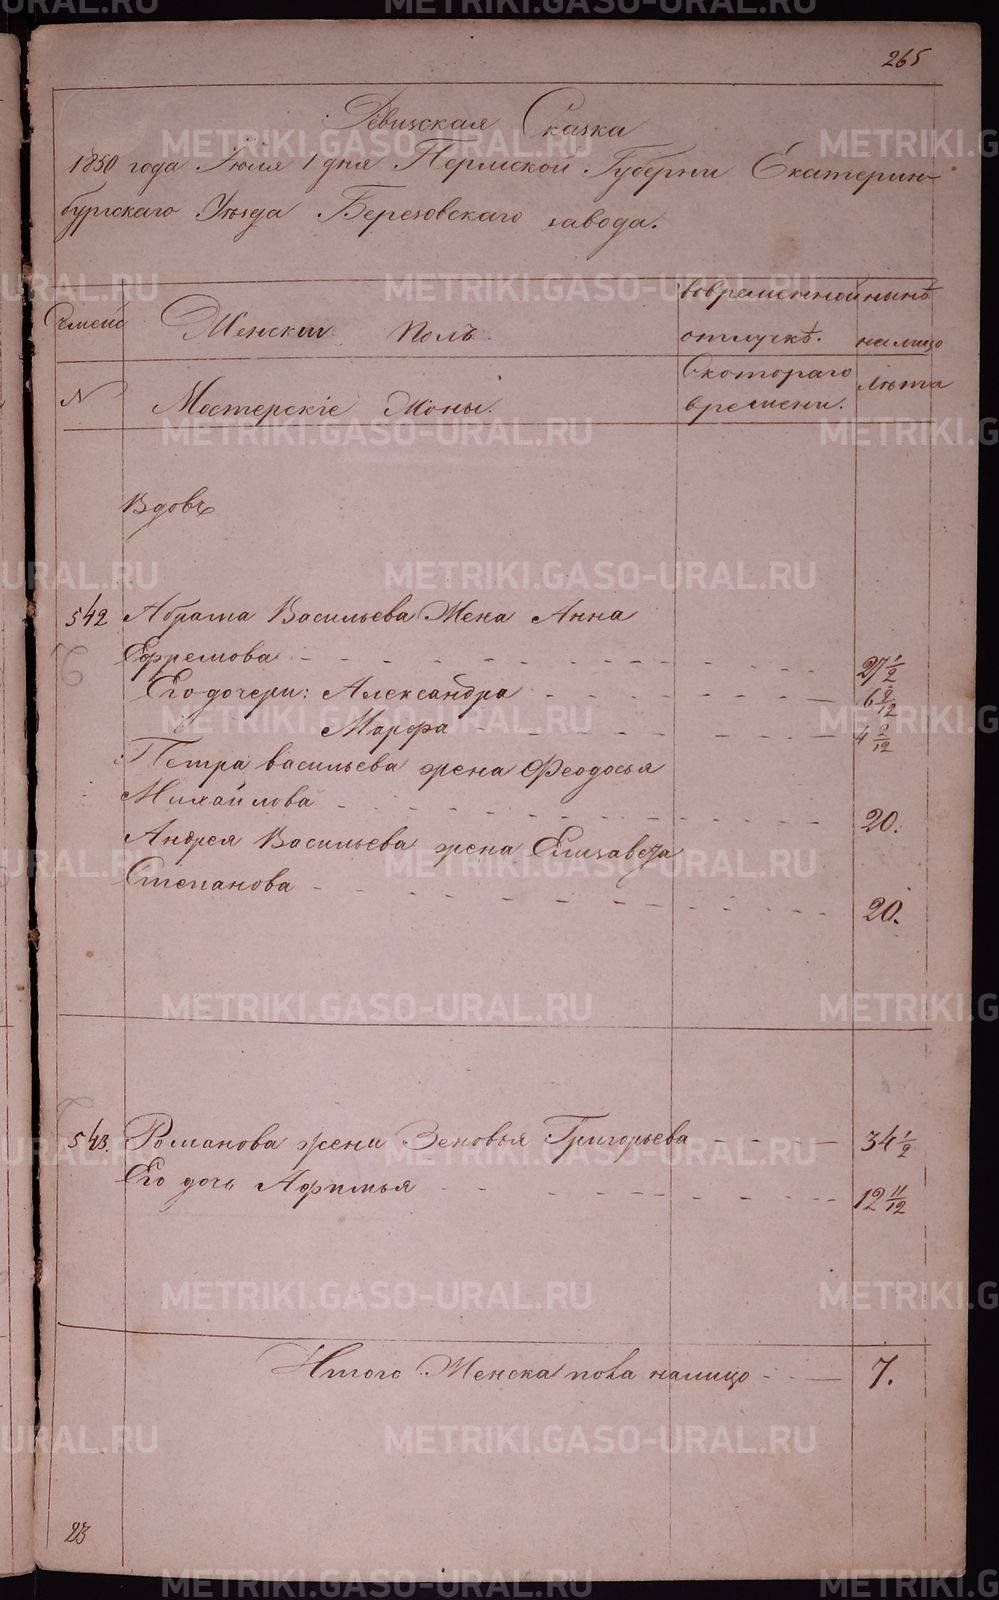 265
Ревизская Сказка
1850 года Июля 1 дня Пермской Губерни Екатерин-
бургскаго Уезда Березовскаго завода.
Женский Полъ.
вовременной
отлучкѣ.
нынѣ
налицо
№
Мастерскіе Жоны.
Скотораго
времени.
Лѣта
Вдовъ
542 Абрама Васильева Жена Анна
Ефремова 27 1/2
Его дочери: Александра 6 9/12
Марфа 4 9/12
Петра Васильева жена Феодосья
Михайлова 20.
Андрея Васильева жена Елизавета
Степанова 20.
543. Романова жена Зеновья Григорьева 34 1/2
Его дочь Афимья 12 11/12
Итого Женска пола налицо 7.
23
METRIKI.GASO-URAL.RU